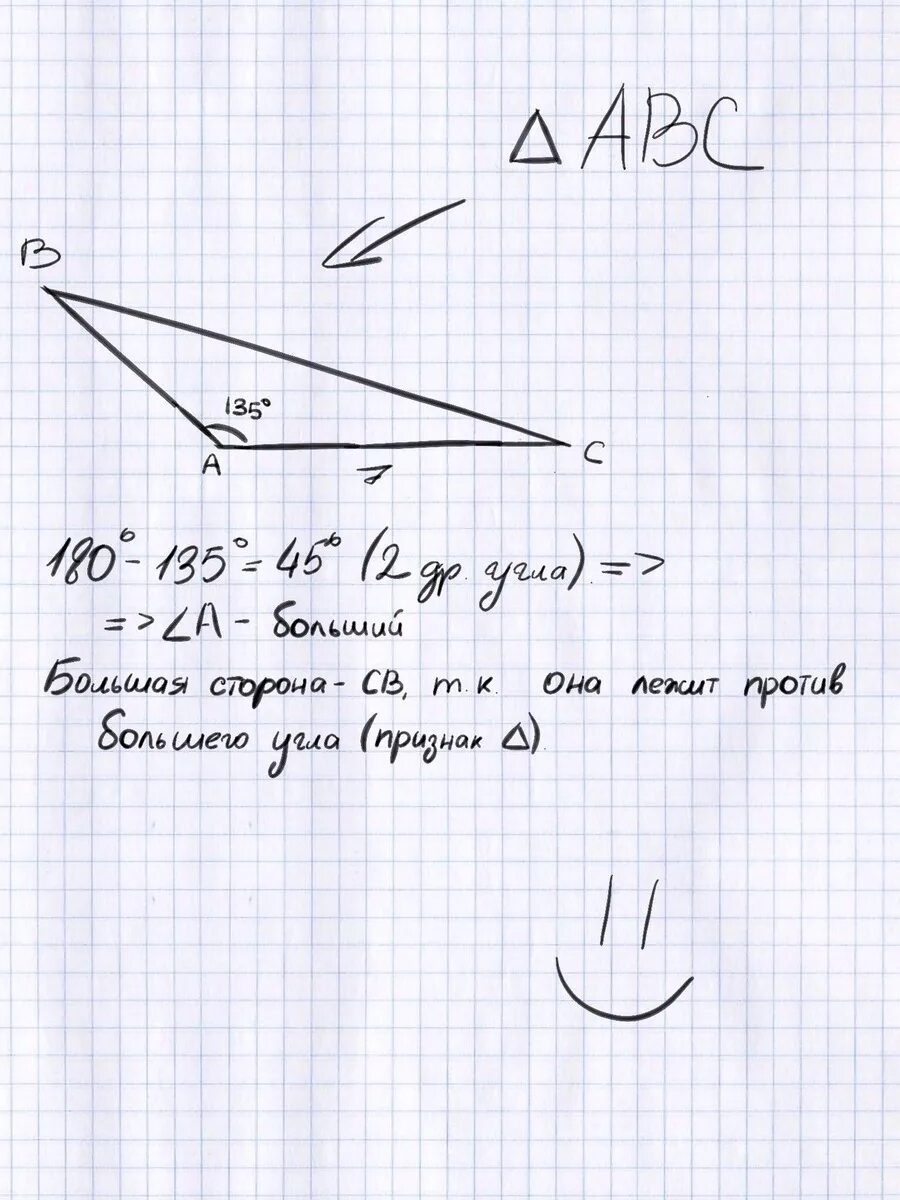 △ABC
B
135°
A
C
7
180° - 135° = 45° (2 др. угла). =>
=> ∠A - больший
Большая сторона - СВ, т.к. она лежит против
большего угла (признак △).